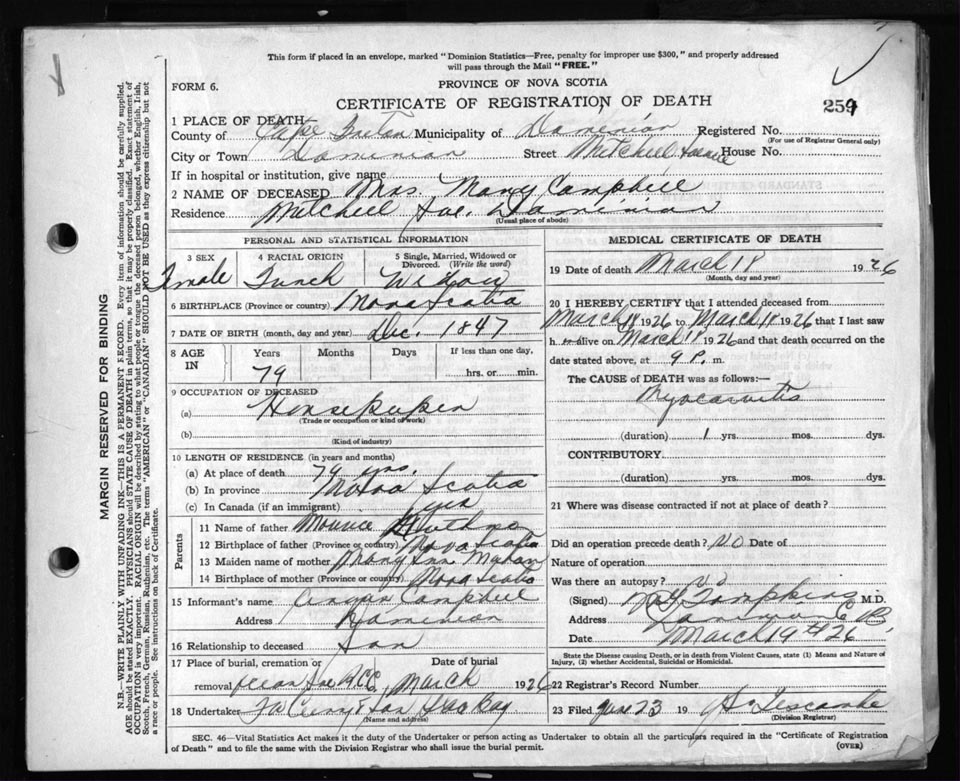 This form if placed in an envelope, marked "Dominion Statistics—Free, penalty for improper use $300," and properly addressed
will pass through the Mail "FREE."
FORM 6.
PROVINCE OF NOVA SCOTIA
CERTIFICATE OF REGISTRATION OF DEATH
259
1 PLACE OF DEATH
County of Cape Breton Municipality of Dominion Registered No.
(For use of Registrar General only)
City or Town Dominion Street Mitchell House No.
If in hospital or institution, give name
2 NAME OF DECEASED Mrs. Mary Campbell
Residence Mitchell Ave. Dominion
(Usual place of abode)
PERSONAL AND STATISTICAL INFORMATION
3 SEX
Female
4 RACIAL ORIGIN
French
5 Single, Married, Widowed or
Divorced. (Write the word)
Widow
6 BIRTHPLACE (Province or country) Nova Scotia
7 DATE OF BIRTH (month, day and year) Dec. 1847
8 AGE
IN
Years
79
Months
Days
If less than one day,
hrs. or min.
9 OCCUPATION OF DECEASED
(a) Housekeeper
(Trade or occupation or kind of work)
(b)
(Kind of industry)
10 LENGTH OF RESIDENCE (in years and months)
(a) At place of death 79 yrs.
(b) In province Nova Scotia
(c) In Canada (if an immigrant) yes
Parents
11 Name of father
12 Birthplace of father (Province or country) Nova Scotia
13 Maiden name of mother Mary Ann
14 Birthplace of mother (Province or country) Nova Scotia
15 Informant's name Angus Campbell
Address Dominion
16 Relationship to deceased Son
17 Place of burial, cremation or
removal
Date of burial
March 1926
18 Undertaker
(Name and address)
MEDICAL CERTIFICATE OF DEATH
19 Date of death March 18 1926
(Month, day and year)
20 I HEREBY CERTIFY that I attended deceased from
March 18 1926 to March 18 1926 that I last saw
h alive on March 18 1926 and that death occurred on the
date stated above, at 9 P. m.
The CAUSE OF DEATH was as follows:—
Myocarditis
(duration) 1 yrs. mos. dys.
CONTRIBUTORY
(duration) yrs. mos. dys.
21 Where was disease contracted if not at place of death?
Did an operation precede death? NO Date of
Nature of operation
Was there an autopsy?
(Signed) Tompkins M.D.
Address Dominion C.B.
Date March 19th 26
State the Disease causing Death, or in death from Violent Causes, state (1) Means and Nature of
Injury, (2) whether Accidental, Suicidal or Homicidal.
22 Registrar's Record Number
23 Filed June 23 19
(Division Registrar)
SEC. 46—Vital Statistics Act makes it the duty of the Undertaker or person acting as Undertaker to obtain all the particulars required in the "Certificate of Registration
of Death" and to file the same with the Division Registrar who shall issue the burial permit.
(OVER)
MARGIN RESERVED FOR BINDING
N.B.—WRITE PLAINLY WITH UNFADING INK—THIS IS A PERMANENT RECORD. Every item of information should be carefully supplied.
AGE should be stated EXACTLY. PHYSICIANS should STATE CAUSE OF DEATH in plain terms, so that it may be properly classified. Exact statement of
OCCUPATION is very important. RACIAL ORIGIN will be described by stating to what people or tongue the deceased person belonged, whether English, Irish,
Scotch, French, German, Russian, Ruthenian, etc. The terms "AMERICAN" or "CANADIAN" SHOULD NOT BE USED as they express citizenship but not
a race or people. See instructions on back of Certificate.